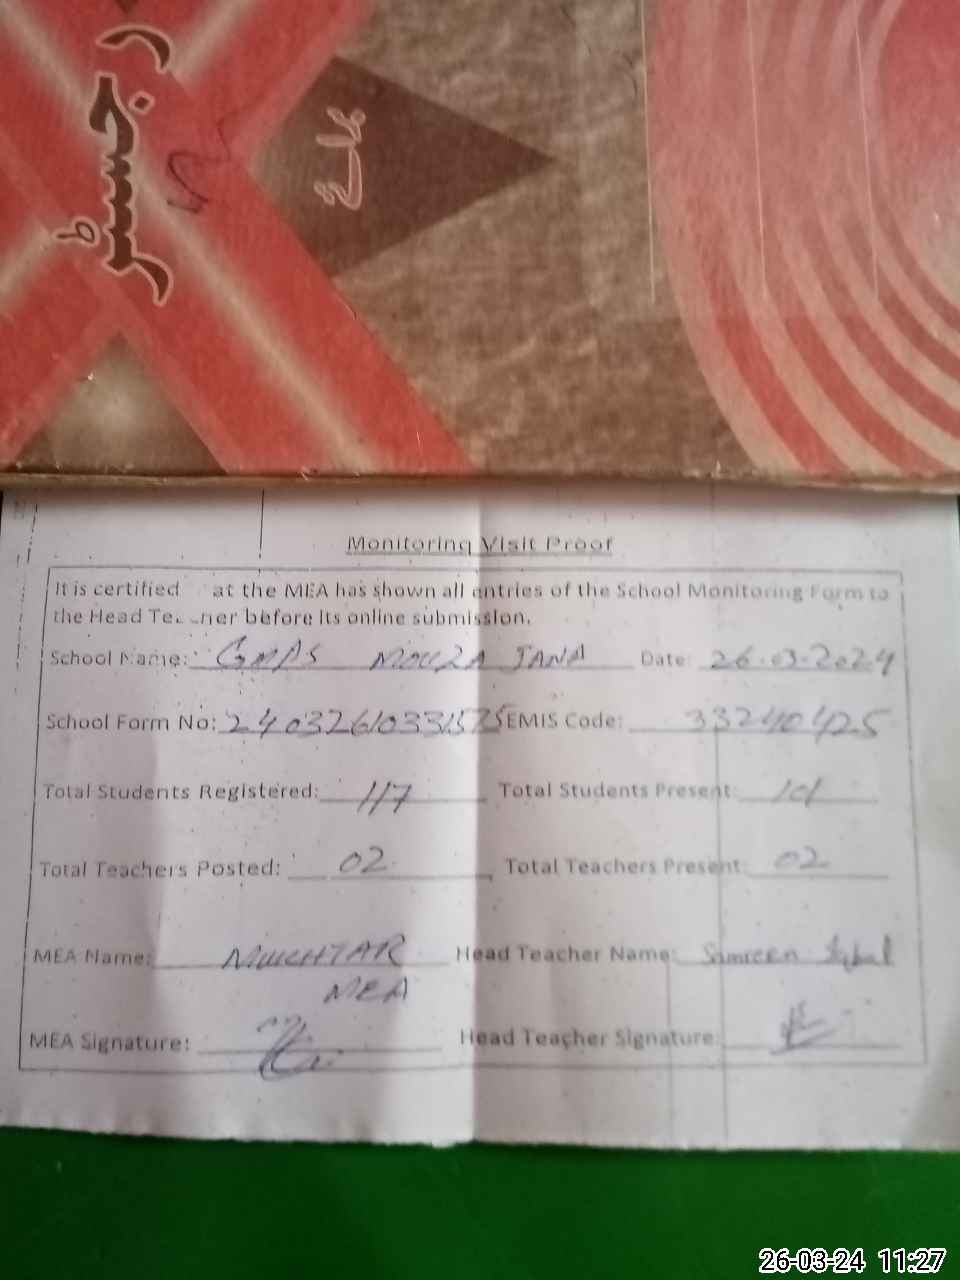 رجسٹر
Monitoring Visit Proof
It is certified at the MEA has shown all entries of the School Monitoring Form to
the Head Te ner before its online submission.
School Name: GMPS MOUZA JANA Date: 26.03.2024
School Form No: 24032610331575 EMIS Code: 33240425
Total Students Registered: 117 Total Students Present: 101
Total Teachers Posted: 02 Total Teachers Present: 02
MEA Name: MUKHTAR Head Teacher Name: Samreen Iqbal
MEA
MEA Signature: Head Teacher Signature:
26-03-24 11:27